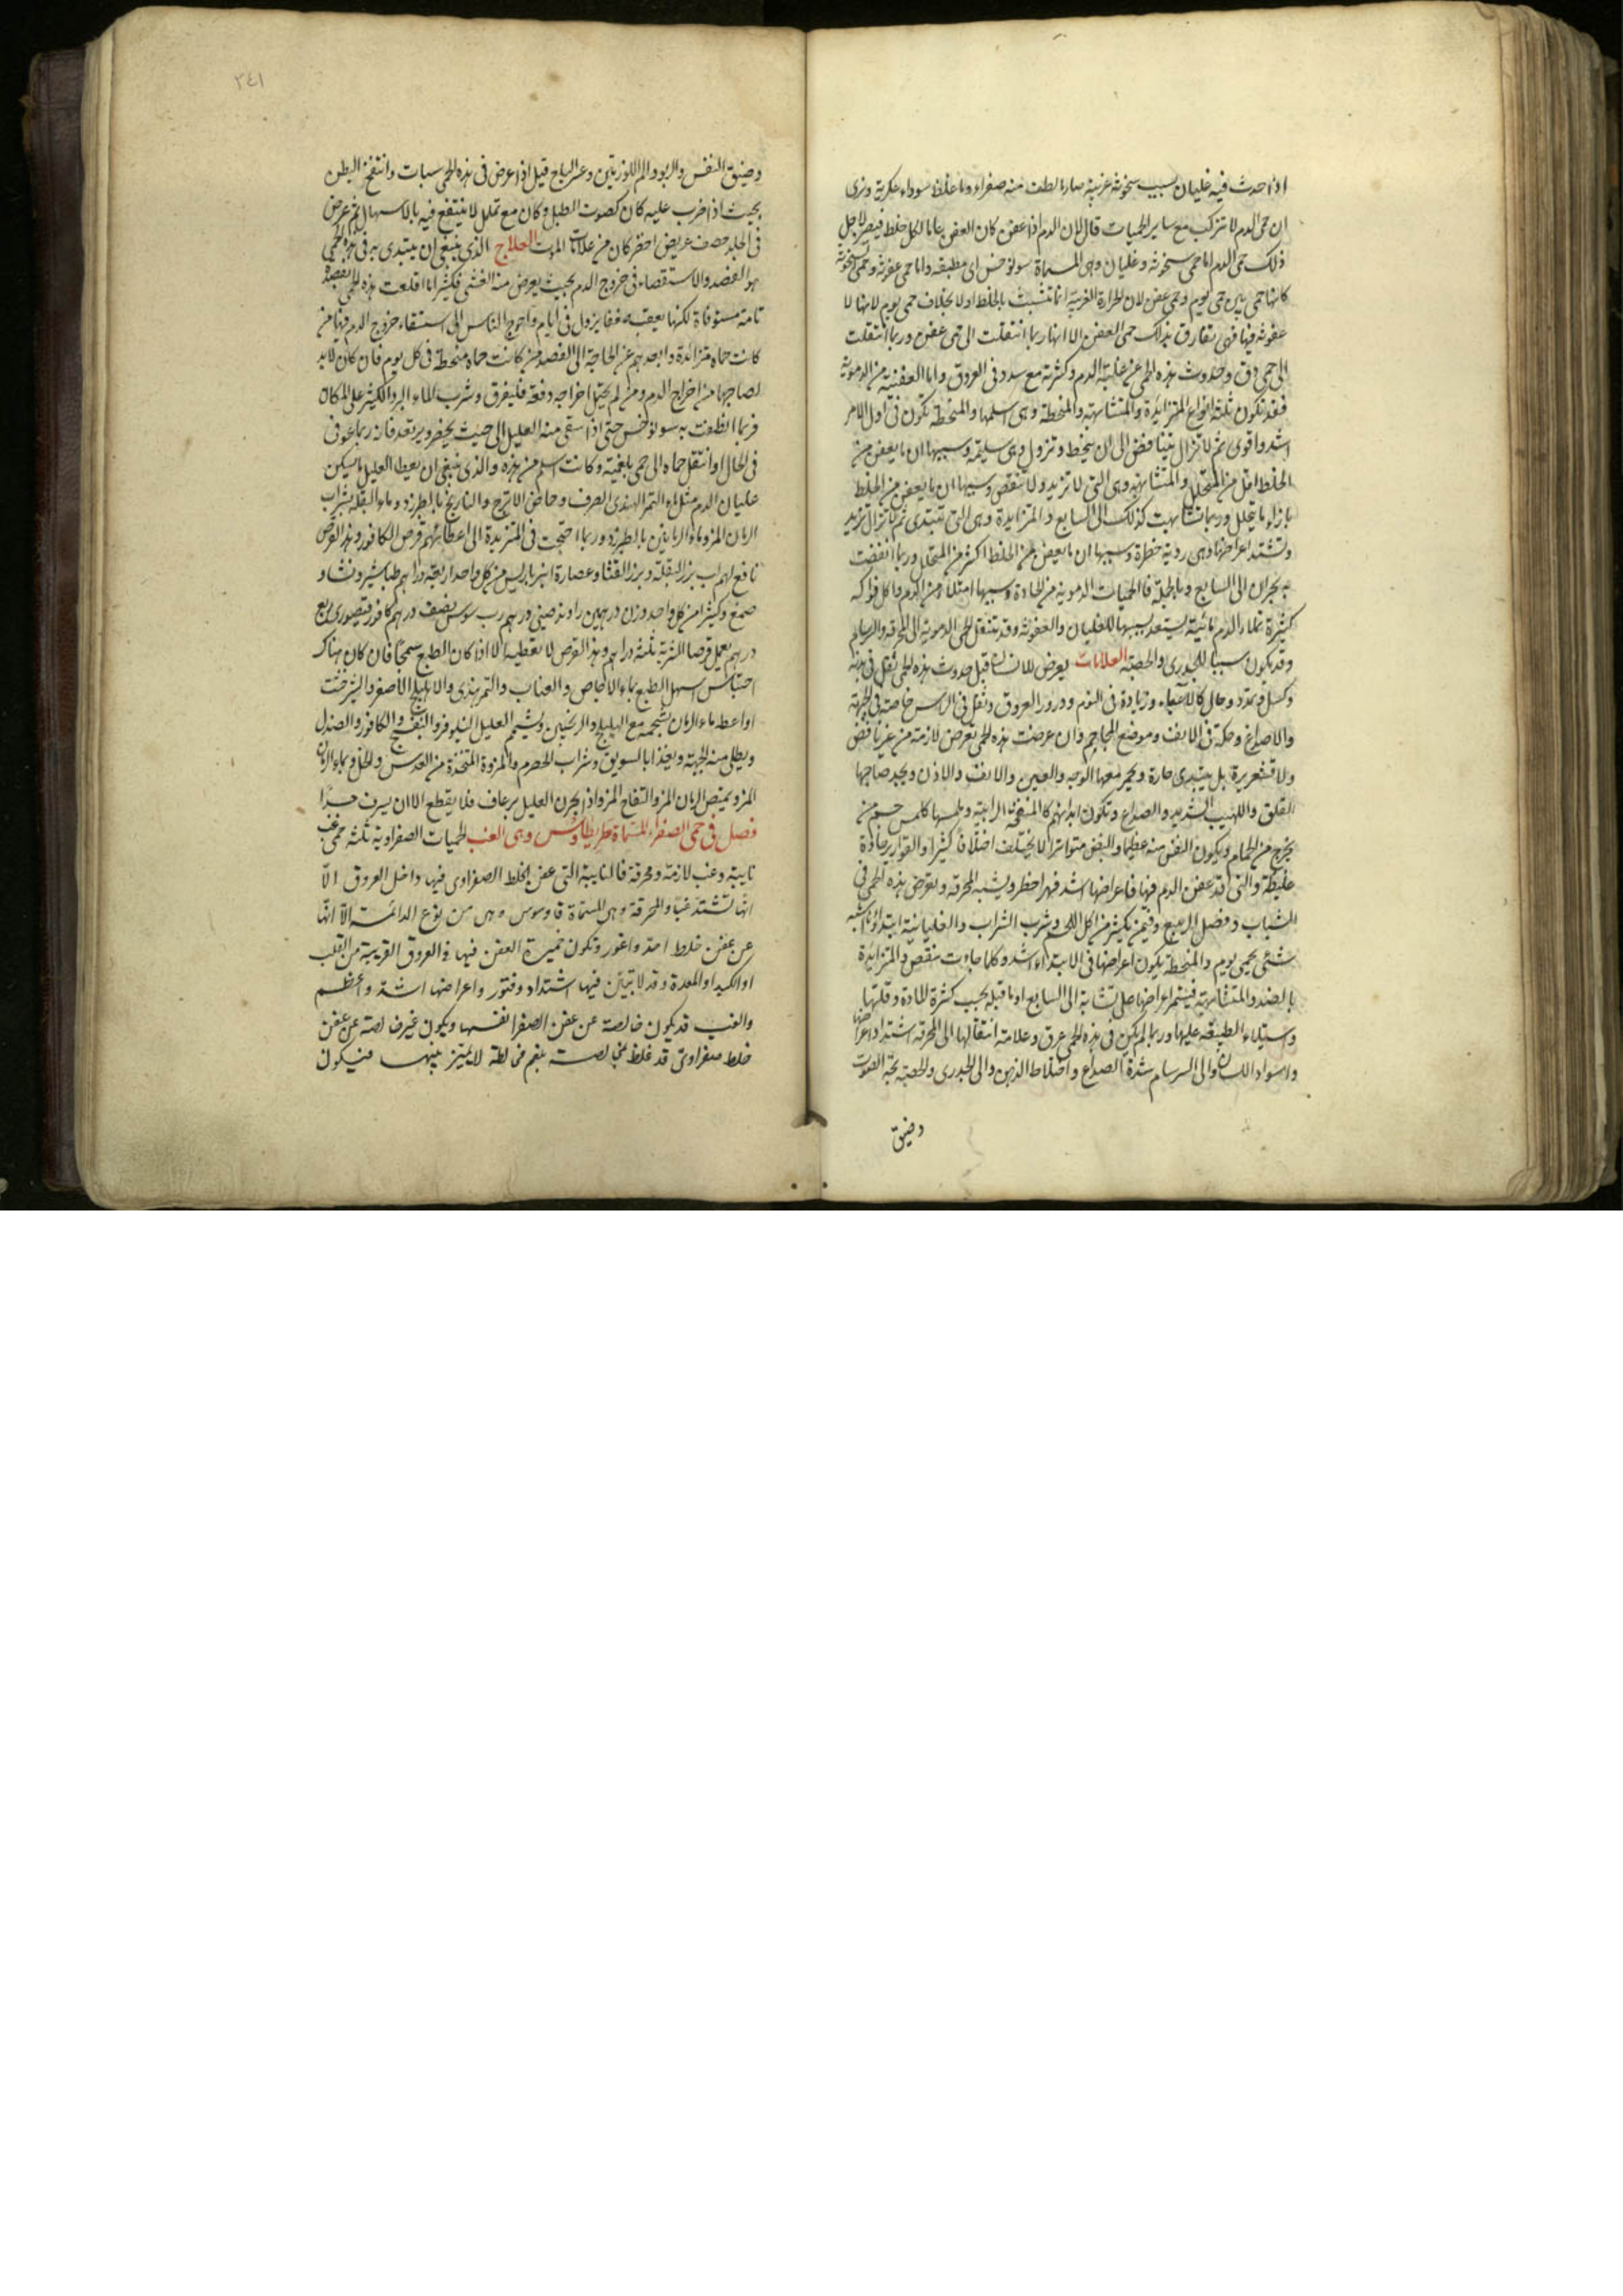 اذا حدث فيه غليان بسبب سخونة غريبة صار ما لطف منه صفراء وما غلظ سوداء عكرية ونرى
ان حمى الدم لا تتركب مع ساير الحميات قال لان الدم اذا عفن كان العفن عاما لكل خلط فيصير لاجل
ذلك حمى الدم اما حمى سخونة وغليان وهى المسماة سونوخس اى مطبقه واما حمى عفونة وحمى سخونة
كانها حمى بين حمى اليوم وحمى عفن لان الحرارة الغريبة انما تتشبث بالخلط اولا بخلاف حمى يوم لانها لا
عفونة فيها فهى تفارق بذلك حمى العفن الا انها ربما انتقلت الى حمى عفن وربما انتقلت
الى حمى دق وحدوث هذه الحمى عن غلبة الدم وكثرته مع سدد فى العروق واما العفنية من الدموية
فقد تكون ثلثة انواع المتزايدة والمتشابهة والمنحطة وهى اسلمها والمنحطة تكون فى اول الامر
اشد واقوى ثم لا تزال تتناقض الى ان ينحط وتزول وهى سليمة وسببها ان ما يعفن من
الخلط اقل من المتحلل والمتشابهة وهى التى لا تزيد ولا تنقص وسببها ان ما يعفن من الخلط
بازاء ما يتحلل وربما تشابهت كذلك الى السابع والمتزايدة وهى التى تبتدى ثم لا تزال تزيد
وتشتد اعراضها وهى ردية خطرة وسببها ان ما يعفن من الخلط اكثر من المتحلل وربما انقضت
ببحران الى السابع وبالجملة فالحميات الدموية من الحادة وسببها امتلاء من الدم واكل فواكه
كثيرة تملاء الدم مائية يستعد بسببها للغليان والعفونة وقد تنتقل الحمى الدموية الى المحرقة والسرسام
وقد يكون سببا للجدرى والحصبة العلامات يعرض للانسان قبل حدوث هذه الحمى ثقل فى بدنه
وكسل وتمدد وحال كالاعياء وزيادة فى النوم ودرور العروق وثقل فى الراس خاصة فى الجبهة
والاصداغ وحكة فى الانف وموضع المحاجم وان عرضت هذه الحمى تعرض لازمة من غير نافض
ولا قشعريرة بل يبتدى حارة ويحمر معها الوجه والعين والانف والاذن ويجد صاحبها
القلق واللهيب الشديد والصداع وتكون ابدانهم كالمنتفخة الرابية وملمسها كلمس جسم من
يخرج من الحمام ويكون النفس منه عظيما والنبض متواترا لا يختلف اختلافا كثيرا والقوارير حادة
غليظة والتى قد عفن الدم فيها فاعراضها اشد فهى اخطر ويشبه المحرقة ويعرض هذه الحمى فى
الشباب وفصل الربيع وفيمن يكثر من اكل اللحم وشرب الشراب والغليانية ابتداؤها اشبه
شئ بحمى يوم والمنحطة يكون اعراضها فى الابتداء اشد وكلما جاءت تنقص والمتزايدة
بالضد والمتشابهة فيستمر اعراضها على تشابه الى السابع او ما قبله بحسب كثرة المادة وقلتها
واستيلاء الطبيعة عليها وربما لم يكن فى هذه الحمى عرق وعلامة انتقالها الى المحرقة اشتداد اعراضها
واسوداد اللسان والى السرسام شدة الصداع واختلاط الذهن والى الجدرى والحصبة بحة الصوت
وضيق
٣٤١
وضيق النفس والربو والم اللوزتين وعسر البلع قيل اذا عرض فى هذه الحمى سبات وانتفخ البطن
بحيث اذا ضرب عليه كان كصوت الطبل وكان مع تملل لا ينتفع فيه بالاسهال ثم عرض
فى الجلد حصف عريض اخضر كان من علامات الموت العلاج الذى ينبغى ان يبتدى به فى هذه الحمى
هو الفصد والاستقصاء فى خروج الدم بحيث يعرض منه الغشى فكثيرا ما اقلعت هذه الحمى بفصدة
تامة مستوفاة لكنها يعقبه ضعفا يزول فى ايام واحوج الناس الى استقصاء خروج الدم فيها من
كانت حماه متزائدة وابعدهم عن الحاجة الى الفصد من كانت حماه منحطة فى كل يوم فان كان لابد
لصاحبها من اخراج الدم ومن لم يحتمل اخراجه دفعة فليفرق وشرب الماء البارد الكثير على المكان
فربما انطفت به سونوخس حتى اذا سقى منه العليل الى حيث يخضر ويرتعد فانه ربما عوفى
فى الحال او انتقل حماه الى حمى بلغمية وكانت اسلم من هذه والذى ينبغى ان يعطى العليل ما يسكن
غليان الدم مثل ماء التمر الهندى الصرف وحماض الاترج والنارنج بالطبرزد وماء البقلة بشراب
الرمان المز وماء الرمانين بالطبرزد وربما احتجت فى المتزيدة الى اعطائهم قرص الكافور وهذا القرص
نافع لهم لب بزر البقلة وبزر القثا وعصارة انبرباريس من كل واحد اربعة دراهم طباشير ونشا و
صمغ وكثيرا من كل واحد وزن درهمين راوند صينى درهم رب سوس نصف درهم كافور قيصورى ربع
درهم يعمل قرصا الشربة ثلثة دراهم وهذا القرص لا تعطيه الا اذا كان الطبع سمحا فان كان هناك
احتباس اسهل الطبع بماء الاجاص والعناب والتمر هندى والاهليلج الاصفر والشيرخشت
او اعطه ماء الرمان بشحمه مع الهليلج والترنجبين ويشمم العليل النيلوفر والبنفسج والكافور والصندل
ويطلى منه الجبهة ويغذا بالسويق وشراب الحصرم والمزورة المتخذة من العدس والخل وبماء الرمان
المز ويمتص الرمان المز والتفاح المز واذا بحرن العليل برعاف فلا يقطع الا ان يسرف جدا
فصل فى حمى الصفراء المسماة طريطاوس وهى الغب الحميات الصفراوية ثلثة حمى غب
نايبة وغب لازمة ومحرقة فالنايبة التى عفن الخلط الصفراوى فيها داخل العروق الا
انها تشتد غبا والمحرقة وهى المسماة قاوسوس وهى من نوع الدائمة الا انها
عن عفن خلط احد واغور وتكون خميرة العفن فيها فى العروق القريبة من القلب
او الكبد او المعدة وقد لا يتبين فيها اشتداد وفتور واعراضها اشد واعظم
والغب قد يكون خالصة عن عفن الصفرا نفسها ويكون غير خالصة عن عفن
خلط صفراوى قد غلظ بمخالصة بلغم مخالطة لا يتميز بينهما فيكون